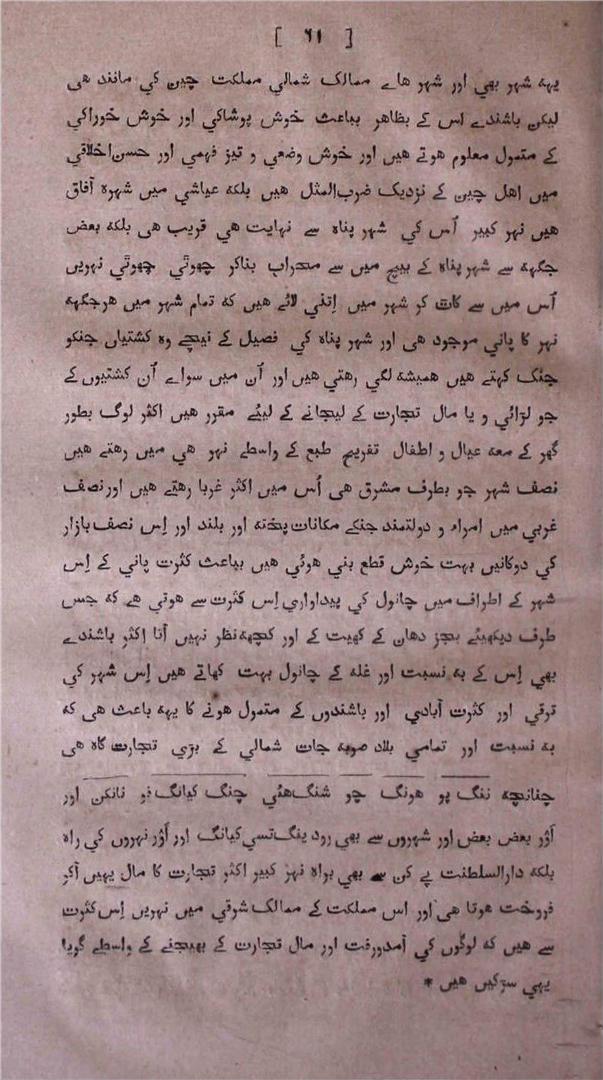 [ ۶۱ ]
یہہ شہر بھي اور شہر هاے ممالک شمالي مملکت چین کي مانند هی
لیکن باشندے اس کے بظاهر بباعث خوش پوشاکي اور خوش خوراکي
کے متمول معلوم هوتے هیں اور خوش وضعي و تیز فہمي اور حسن اخلاقي
میں اهل چین کے نزدیک ضرب المثل هیں بلکہ عیاشي میں شہرہ آفاق
هیں نہر کبیر اُس کي شہر پناہ سے نہایت هي قریب هی بلکہ بعض
جگہہ سے شہر پناہ کے بیچ میں سے محراب بناکر چھوٹي چھوٹي نہریں
اُس میں سے کاٹ کر شہر میں اِتني لائے هیں کہ تمام شہر میں هر جگہہ
نہر کا پاني موجود هی اور شہر پناہ کي فصیل کے نیچے وہ کشتیاں جنکو
جنک کہتے هیں همیشہ لگي رهتي هیں اور اُن میں سواے اُن کشتیوں کے
جو لڑائي و یا مال تجارت کے لیجانے کے لیئے مقرر هیں اکثر لوگ بطور
گھر کے معہ عیال و اطفال تفریح طبع کے واسطے نہر هي میں رهتے هیں
نصف شہر جو بطرف مشرق هی اُس میں اکثر غربا رهتے هیں اور نصف
غربي میں امراء و دولتمند جنکے مکانات پختہ اور بلند اور اِس نصف بازار
کي دوکانیں بہت خوش قطع بني هوئي هیں بباعث کثرت پاني کے اِس
شہر کے اطراف میں چانول کي پیداواري اِس کثرت سے هوتي هے کہ جس
طرف دیکھیئے بجز دھان کے کھیت کے اور کچھہ نظر نہیں آتا اکثر باشندے
بھي اِس کے بہ نسبت اور غلہ کے چانول بہت کھاتے هیں اِس شہر کي
ترقي اور کثرت آبادي اور باشندوں کے متمول هونے کا یہہ باعث هی کہ
بہ نسبت اور تمامي بلاد صوبہ جات شمالي کے بڑي تجارت گاہ هی
چنانچہ ننگ پو هونگ چو شنگ هئي چنگ کیانگ فو نانکن اور
اَوْر بعض بعض اور شہروں سے بھي رود ینگ تسي کیانگ اور اَوْر نہروں کي راہ
بلکہ دارالسلطنت پے کن سے بھي براہ نہر کبیر اکثر تجارت کا مال یہیں آکر
فروخت هوتا هی اور اس مملکت کے ممالک شرقي میں نہریں اِس کثرت
سے هیں کہ لوگوں کي آمدورفت اور مال تجارت کے بھیجنے کے واسطے گویا
یہي سڑکیں هیں *